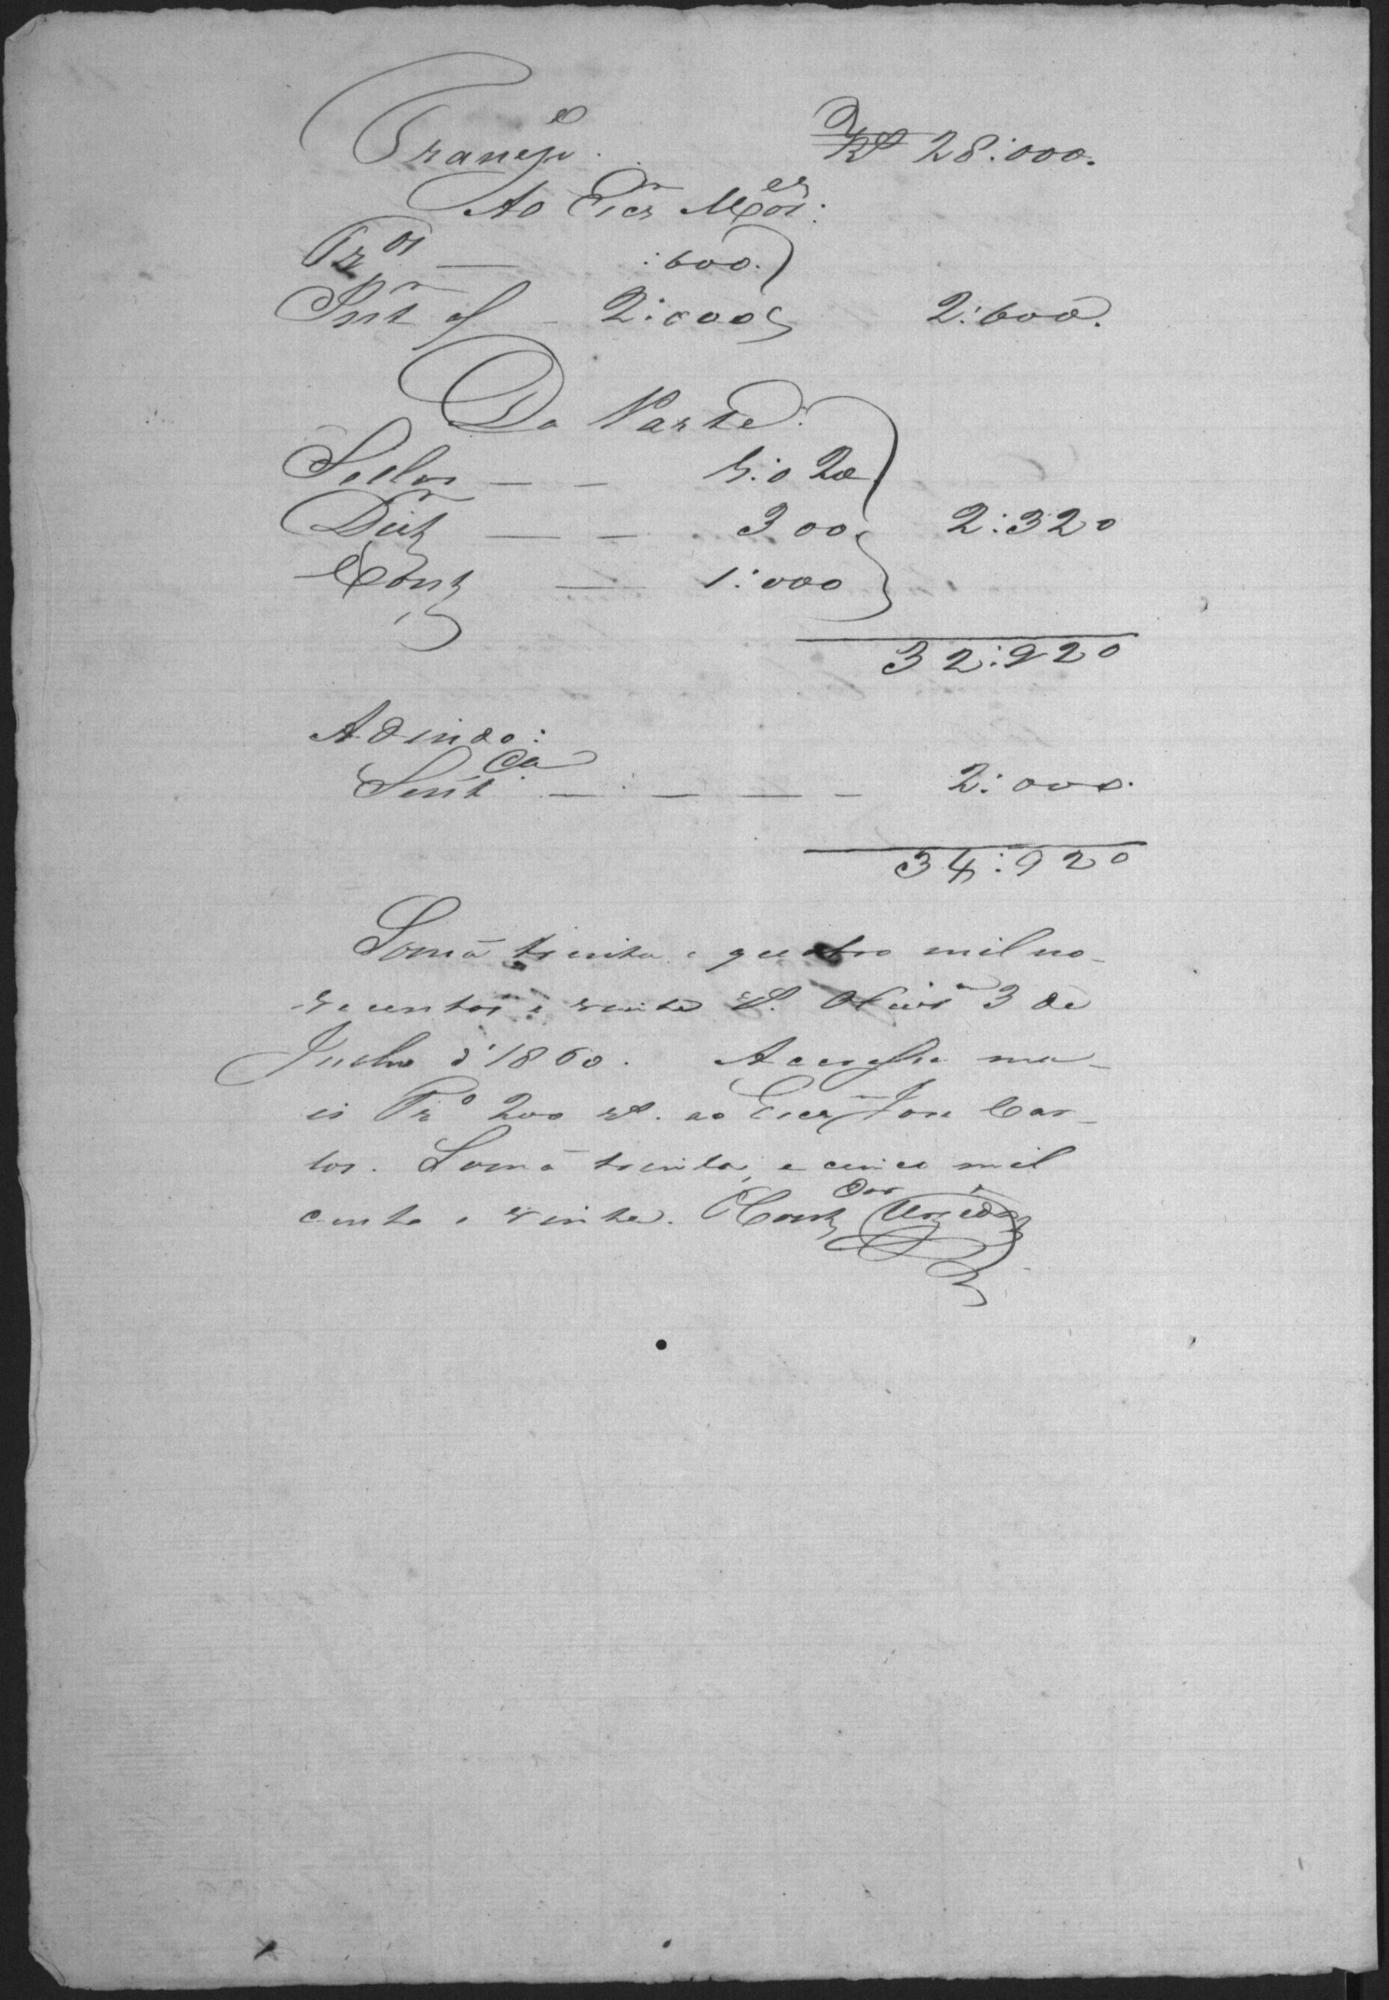 Transpe. Rs 28:000.
Ao Escm
Tros — :600.
2:000 2:600.
Da Parte:
Sellos — — 1:020
Distr — — 300 2:320
Cont — 1:000
32:920
Adindo:
Sentca — — — — 2:000.
34:920
Somã trinta e quatro mil no-
vecentos e vinte rs. 3 de
Julho d'1860. Accresse ma-
is Tro 200 rs. ao Escrm Jose Car-
los. Somã trinta, e cinco mil
cento e vinte. Contdor